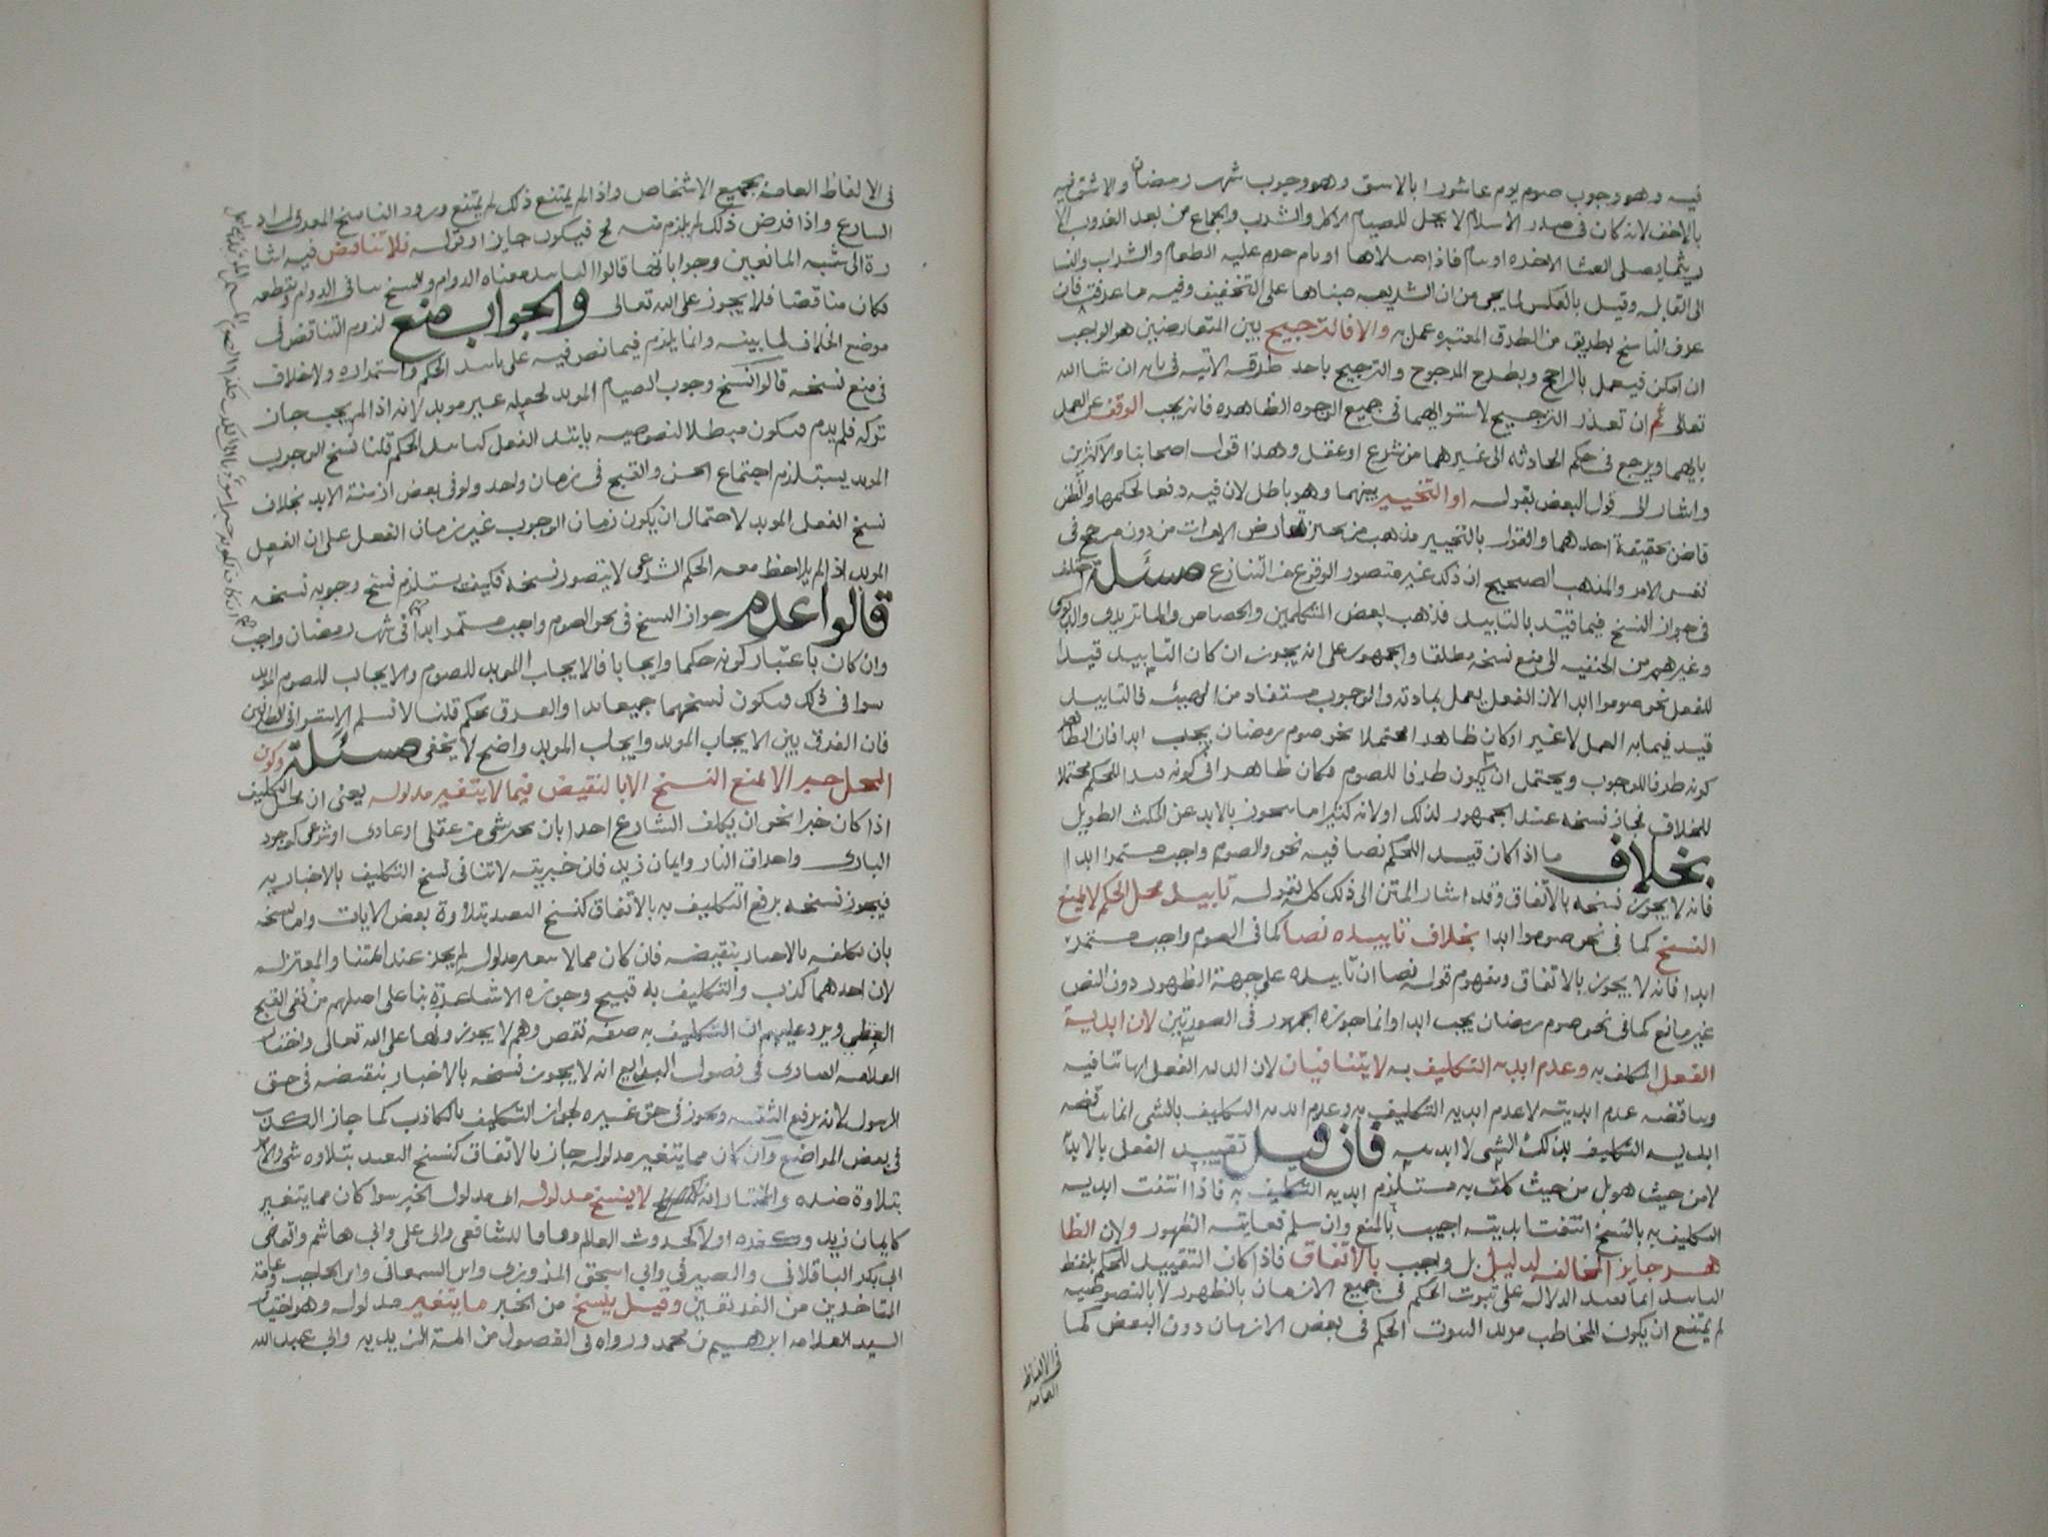 فيه وهو وجوب صوم يوم عاشورا بالاشق وهو وجوب شهر رمضان والاشق فيه
بالاخف لانه كان في صدر الاسلام لا يحل للصيام الاكل والشرب والجماع من بعد الغروب الا
ريثما يصلى العشا الاخره او ينام فاذا صلاها او نام حرم عليه الطعام والشراب والنسا
الى القابله وقيل بالعكس لما يجي من ان الشريعه مبناها على التخفيف وفيه ما عرفت فان
عرف الناسخ بطريق من الطرق المعتبره عمل به والا فالترجيح بين المتعارضين هو الواجب
ان امكن فيعمل بالراجح ويطرح المرجوح والترجيح باحد طرقه الاتيه في بابه ان شا الله
تعالى ثم ان تعذر الترجيح لاستوائهما في جميع الوجوه الظاهره فانه يجب الوقف عن العمل
بايهما ويرجع في حكم الحادثه الى غيرهما من شرع او عقل وهذا قول اصحابنا والاكثرين
واشار الى قول البعض بقوله او التخيير بينهما وهو باطل لان فيه دفعا لحكمهما والظن
قاض بحقيقة احدهما والقول بالتخيير مذهب من يجيز تعارض الامارات من دون مرجح في
نفس الامر والمذهب الصحيح ان ذلك غير متصور الوقوع مسئلة اختلف
في جواز النسخ فيما قيد بالتابيد فذهب بعض المتكلمين والجصاص والماتريدي والدبوسي
وغيرهم من الحنفيه الى منع نسخه مطلقا والجمهور على انه يجوز ان كان التابيد قيدا
للفعل نحو صوموا ابدا لان الفعل يعمل بمادته والوجوب مستفاد من الهيئه فالتابيد
قيد فيما به العمل لا غير او كان ظاهرا محتملا نحو صوم رمضان يجب ابدا فان الظاهر
كونه ظرفا للوجوب ويحتمل ان يكون ظرفا للصوم فكان ظاهرا في كونه قيدا للحكم محتملا
للخلاف فجاز نسخه عند الجمهور لذلك او لانه كثيرا ما يتجوز بالابد عن المكث الطويل
بخلاف ما اذا كان قيد الحكم نصا فيه نحو الصوم واجب مستمرا ابدا
فانه لا يجوز نسخه بالاتفاق وقد اشار المتن الى ذلك كله بقوله تابيد محل الحكم لا يمنع
النسخ كما في نحو صوموا ابدا بخلاف تابيده نصا كما في الصوم واجب مستمر
ابدا فانه لا يجوز بالاتفاق ومفهوم قوله نصا ان تابيده على جهة الظهور دون النص
غير مانع كما في نحو صوم رمضان يجب ابدا وانما جوزه الجمهور في الصورتين لان ابدية
الفعل المكلف به وعدم ابديه التكليف به لا يتنافيان لان ابديه الفعل انما تنافيه
ويناقضه عدم ابديته لا عدم ابديه التكليف به وعدم ابديه التكليف بالشي انما يناقضه
ابديه التكليف بذلك الشى لا ابديته فان قيل تقييد الفعل بالابد
لا من حيث هو بل من حيث كلف به مستلزم ابديه التكليف به فاذا انتفت ابديه
التكليف به بالنسخ انتفت ابديته اجيب بالمنع وان سلم فغايته الظهور ولان الظا
هر جايز المخالفه لدليل بل واجب بالاتفاق فاذا كان التقييد للحكم بلفظ
التابيد انما يفيد الدلاله على ثبوت الحكم في جميع الازمان بالظهور لا بالنصوصيه
لم يمتنع ان يكون المخاطب مريد الثبوت الحكم في بعض الازمان دون البعض كما
في الالفاظ
العامه
في الالفاظ العامه بجميع الاشخاص واذا لم يمتنع ذلك لم يمتنع ورود الناسخ المعرف لمراد
الشارع واذا فرض ذلك لم يلزم منه مح فيكون جايزا وقوله فلا تناقض فيه اشا
رة الى شبه المانعين وجواباتها قالوا التابيد معناه الدوام والنسخ ينافي الدوام ويقطعه
فكان مناقضا فلا يجوز على الله تعالى والجواب منع لزوم التناقض في
موضع الخلاف لما بينه وانما يلزم فيما نص فيه على تابيد الحكم واستمراره ولا خلاف
في منع نسخه قالوا نسخ وجوب الصيام الموبد لجعله غير موبد لانه اذا لم يجب جاز
تركه فلم يدم فيكون مبطلا لنصوصيه تابيد الفعل كتابيد الحكم قلنا نسخ الوجوب
الموبد يستلزم اجتماع الحسن والقبح في زمان واحد ولو في بعض ازمنة الابد بخلاف
نسخ الفعل الموبد لاحتمال ان يكون زمان الوجوب غير زمان الفعل على ان الفعل
الموبد اذ الم يلاحظ معه الحكم الشرعى لا يتصور نسخه فكيف يستلزم نسخ وجوبه نسخه
قالوا عدم جواز النسخ في نحو الصوم واجب مستمر ابدا في شهر رمضان واجب
وان كان باعتبار كونه حكما وايجابا فالايجاب الموبد للصوم والايجاب للصوم الموبد
سوا في ذلك فيكون نسخهما جميعا بدا والفرق تحكم قلنا لا نسلم الاستوا
فان الفرق بين الايجاب الموبد وايجاب الموبد واضح لا يخفى مسئلة وكون
المحل خبرا لا يمنع النسخ الا بالنقيض فيما لا يتغير مدلوله يعني ان محل التكليف
اذا كان خبرا نحو ان يكلف الشارع احدا بان يخبر بشي من عقلى او عادى او شرعى كوجود
البارى واحراق النار وايمان زيد فان خبريته لا تنافي نسخ التكليف بالاخبار به
فيجوز نسخه برفع التكليف به بالاتفاق كنسخ التعبد بتلاوة بعض الايات واما نسخه
بان يكلفه بالاخبار بنقيضه فان كان مما لا يتغير مدلوله لم يجز عند ائمتنا والمعتزله
لان احدهما كذب والتكليف به قبيح وجوزه الاشاعرة بنا على اصلهم من نفى القبح
العقلى ويرد عليهم ان التكليف به صفه نقص وهم لا يجوزونها على الله تعالى واختار
العلامه في فصول البدايع انه لا يجوز نسخه بالاخبار بنقيضه في حق
الرسول لانه يرفع الثقه ويجوز في حق غيره لجواز التكليف بالكاذب كما جاز الكذب
في بعض المواضع وان كان مما يتغير مدلوله جاز بالاتفاق كنسخ التعبد بتلاوه شى والامر
بتلاوة ضده والمختار انه لا ينسخ مدلوله اى مدلول الخبر سوا كان مما يتغير
كايمان زيد وكفره او لا كحدوث العالم وفاقا للشافعى والى على وابي هاشم والقاضى
ابي بكر الباقلاني والصيرفي وابي اسحق المروزى وابن السمعاني وابن الحاجب وعامة
المتاخرين من الفريقين وقيل ينسخ من الخبر ما يتغير مدلوله وهو اختيار
السيد العلامه ابراهيم بن محمد ورواه في الفصول عن ائمة الزيديه وابي عبد الله